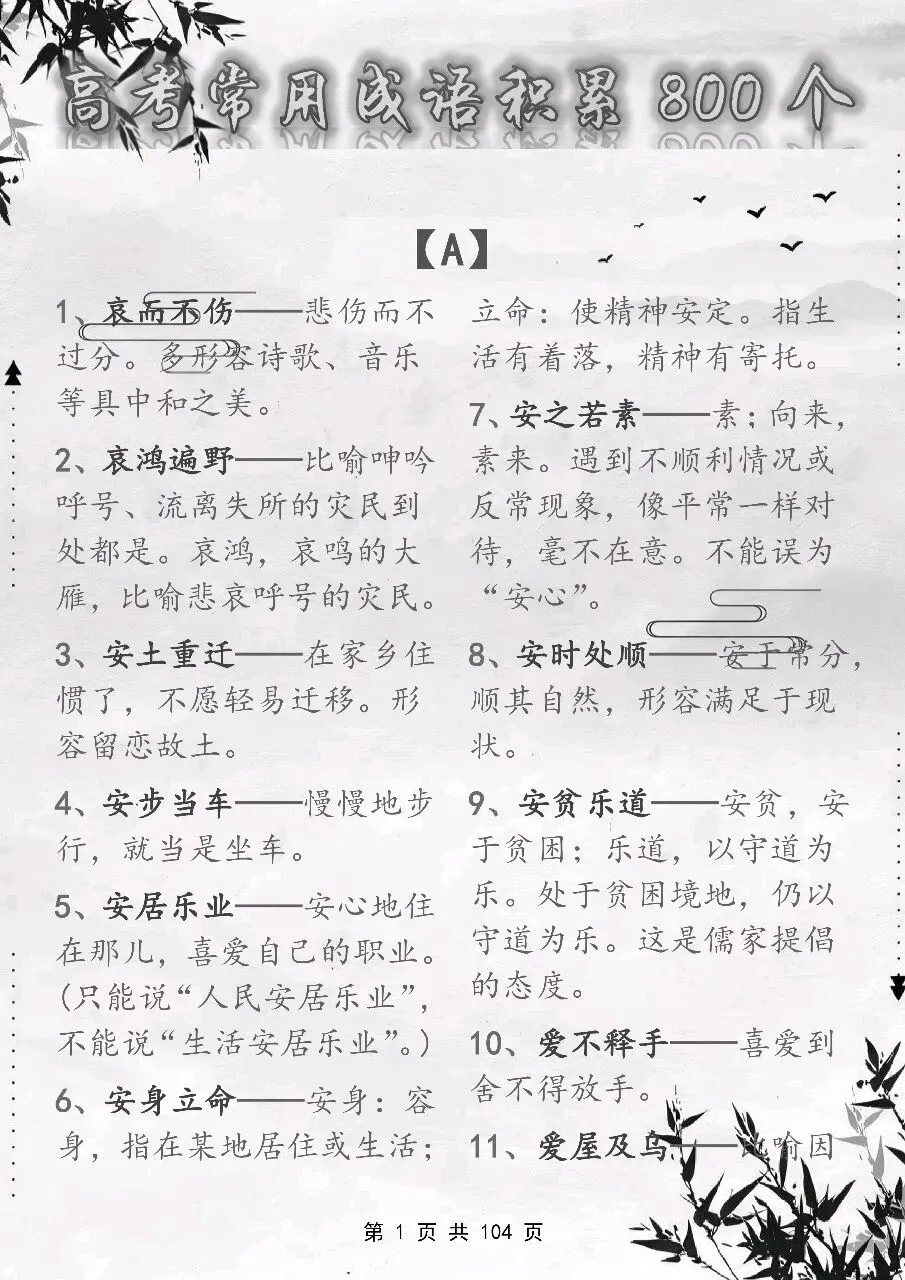 高考常用成语积累 800 个
【A】
1、哀而不伤——悲伤而不
过分。多形容诗歌、音乐
等具中和之美。
2、哀鸿遍野——比喻呻吟
呼号、流离失所的灾民到
处都是。哀鸿，哀鸣的大
雁，比喻悲哀呼号的灾民。
3、安土重迁——在家乡住
惯了，不愿轻易迁移。形
容留恋故土。
4、安步当车——慢慢地步
行，就当是坐车。
5、安居乐业——安心地住
在那儿，喜爱自己的职业。
(只能说“人民安居乐业”，
不能说“生活安居乐业”。)
6、安身立命——安身：容
身，指在某地居住或生活；
立命：使精神安定。指生
活有着落，精神有寄托。
7、安之若素——素；向来，
素来。遇到不顺利情况或
反常现象，像平常一样对
待，毫不在意。不能误为
“安心”。
8、安时处顺——安于常分，
顺其自然，形容满足于现
状。
9、安贫乐道——安贫，安
于贫困；乐道，以守道为
乐。处于贫困境地，仍以
守道为乐。这是儒家提倡
的态度。
10、爱不释手——喜爱到
舍不得放手。
11、爱屋及乌——比喻因
第 1 页 共 104 页